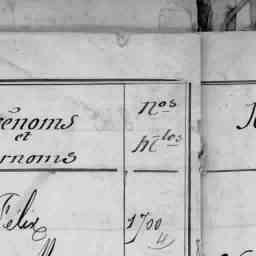 rénoms
et
rnoms
Nos
Mlos
Felix
1700
4